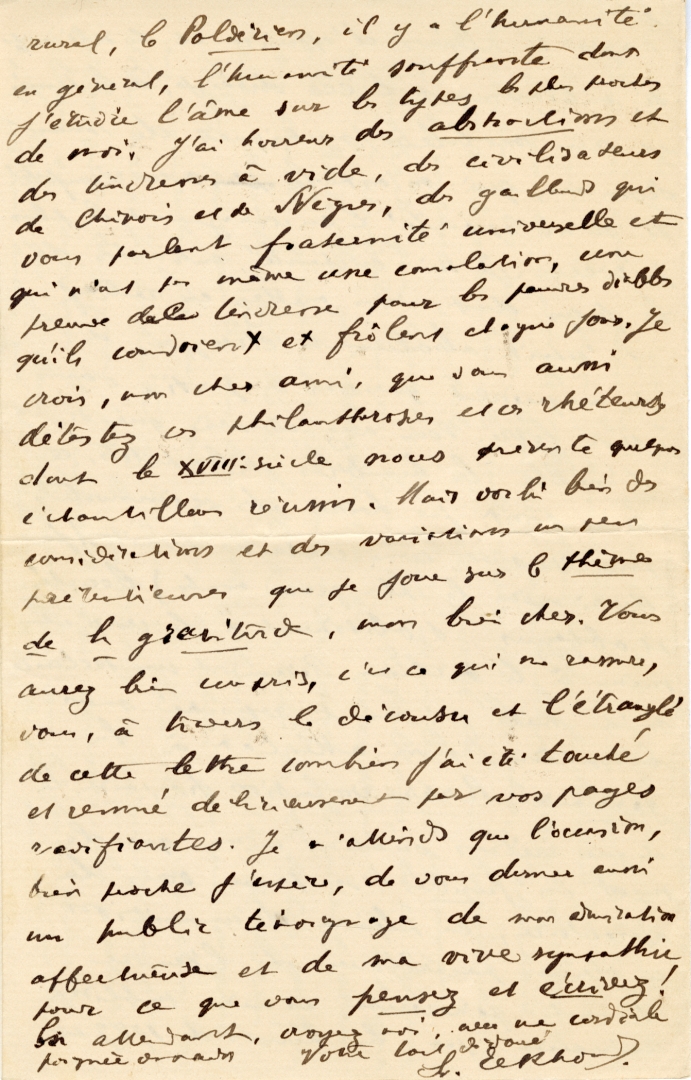 rural, le Poldérien, il y a l'humanité
en général, l'humanité souffrante dont
j'étudie l'âme sur les types les plus proches
de moi. J'ai horreur des abstractions et
des tendresses à vide, des civilisateurs
de Chinois et de Nègres, des gaillards qui
vous parlent fraternité universelle et
qui n'ont pas même une consolation, une
preuve de tendresse pour les pauvres diables
qu'ils coudoient et frôlent chaque jour. Je
crois, mon cher ami, que vous aussi
détestez ces philanthropes et ces rhéteurs
dont le XVIII. siècle nous présente quelques
échantillons réussis. Mais voilà bien des
considérations et des variations un peu
prétentieuses que je joue sur le thème
de la gratitude, mon bien cher. Vous
aurez bien compris, c'est ce qui me rassure,
vous, à travers le décousu et l'étranglé
de cette lettre combien j'ai été touché
et remué délicieusement par vos pages
vivifiantes. Je n'attends que l'occasion,
bien proche j'espère, de vous donner aussi
un public témoignage de mon admiration
affectueuse et de ma vive sympathie
pour ce que vous pensez et écrivez!
En attendant, croyez moi, avec une cordiale
poignée de mains Votre tout dévoué
G. Eekhoud.